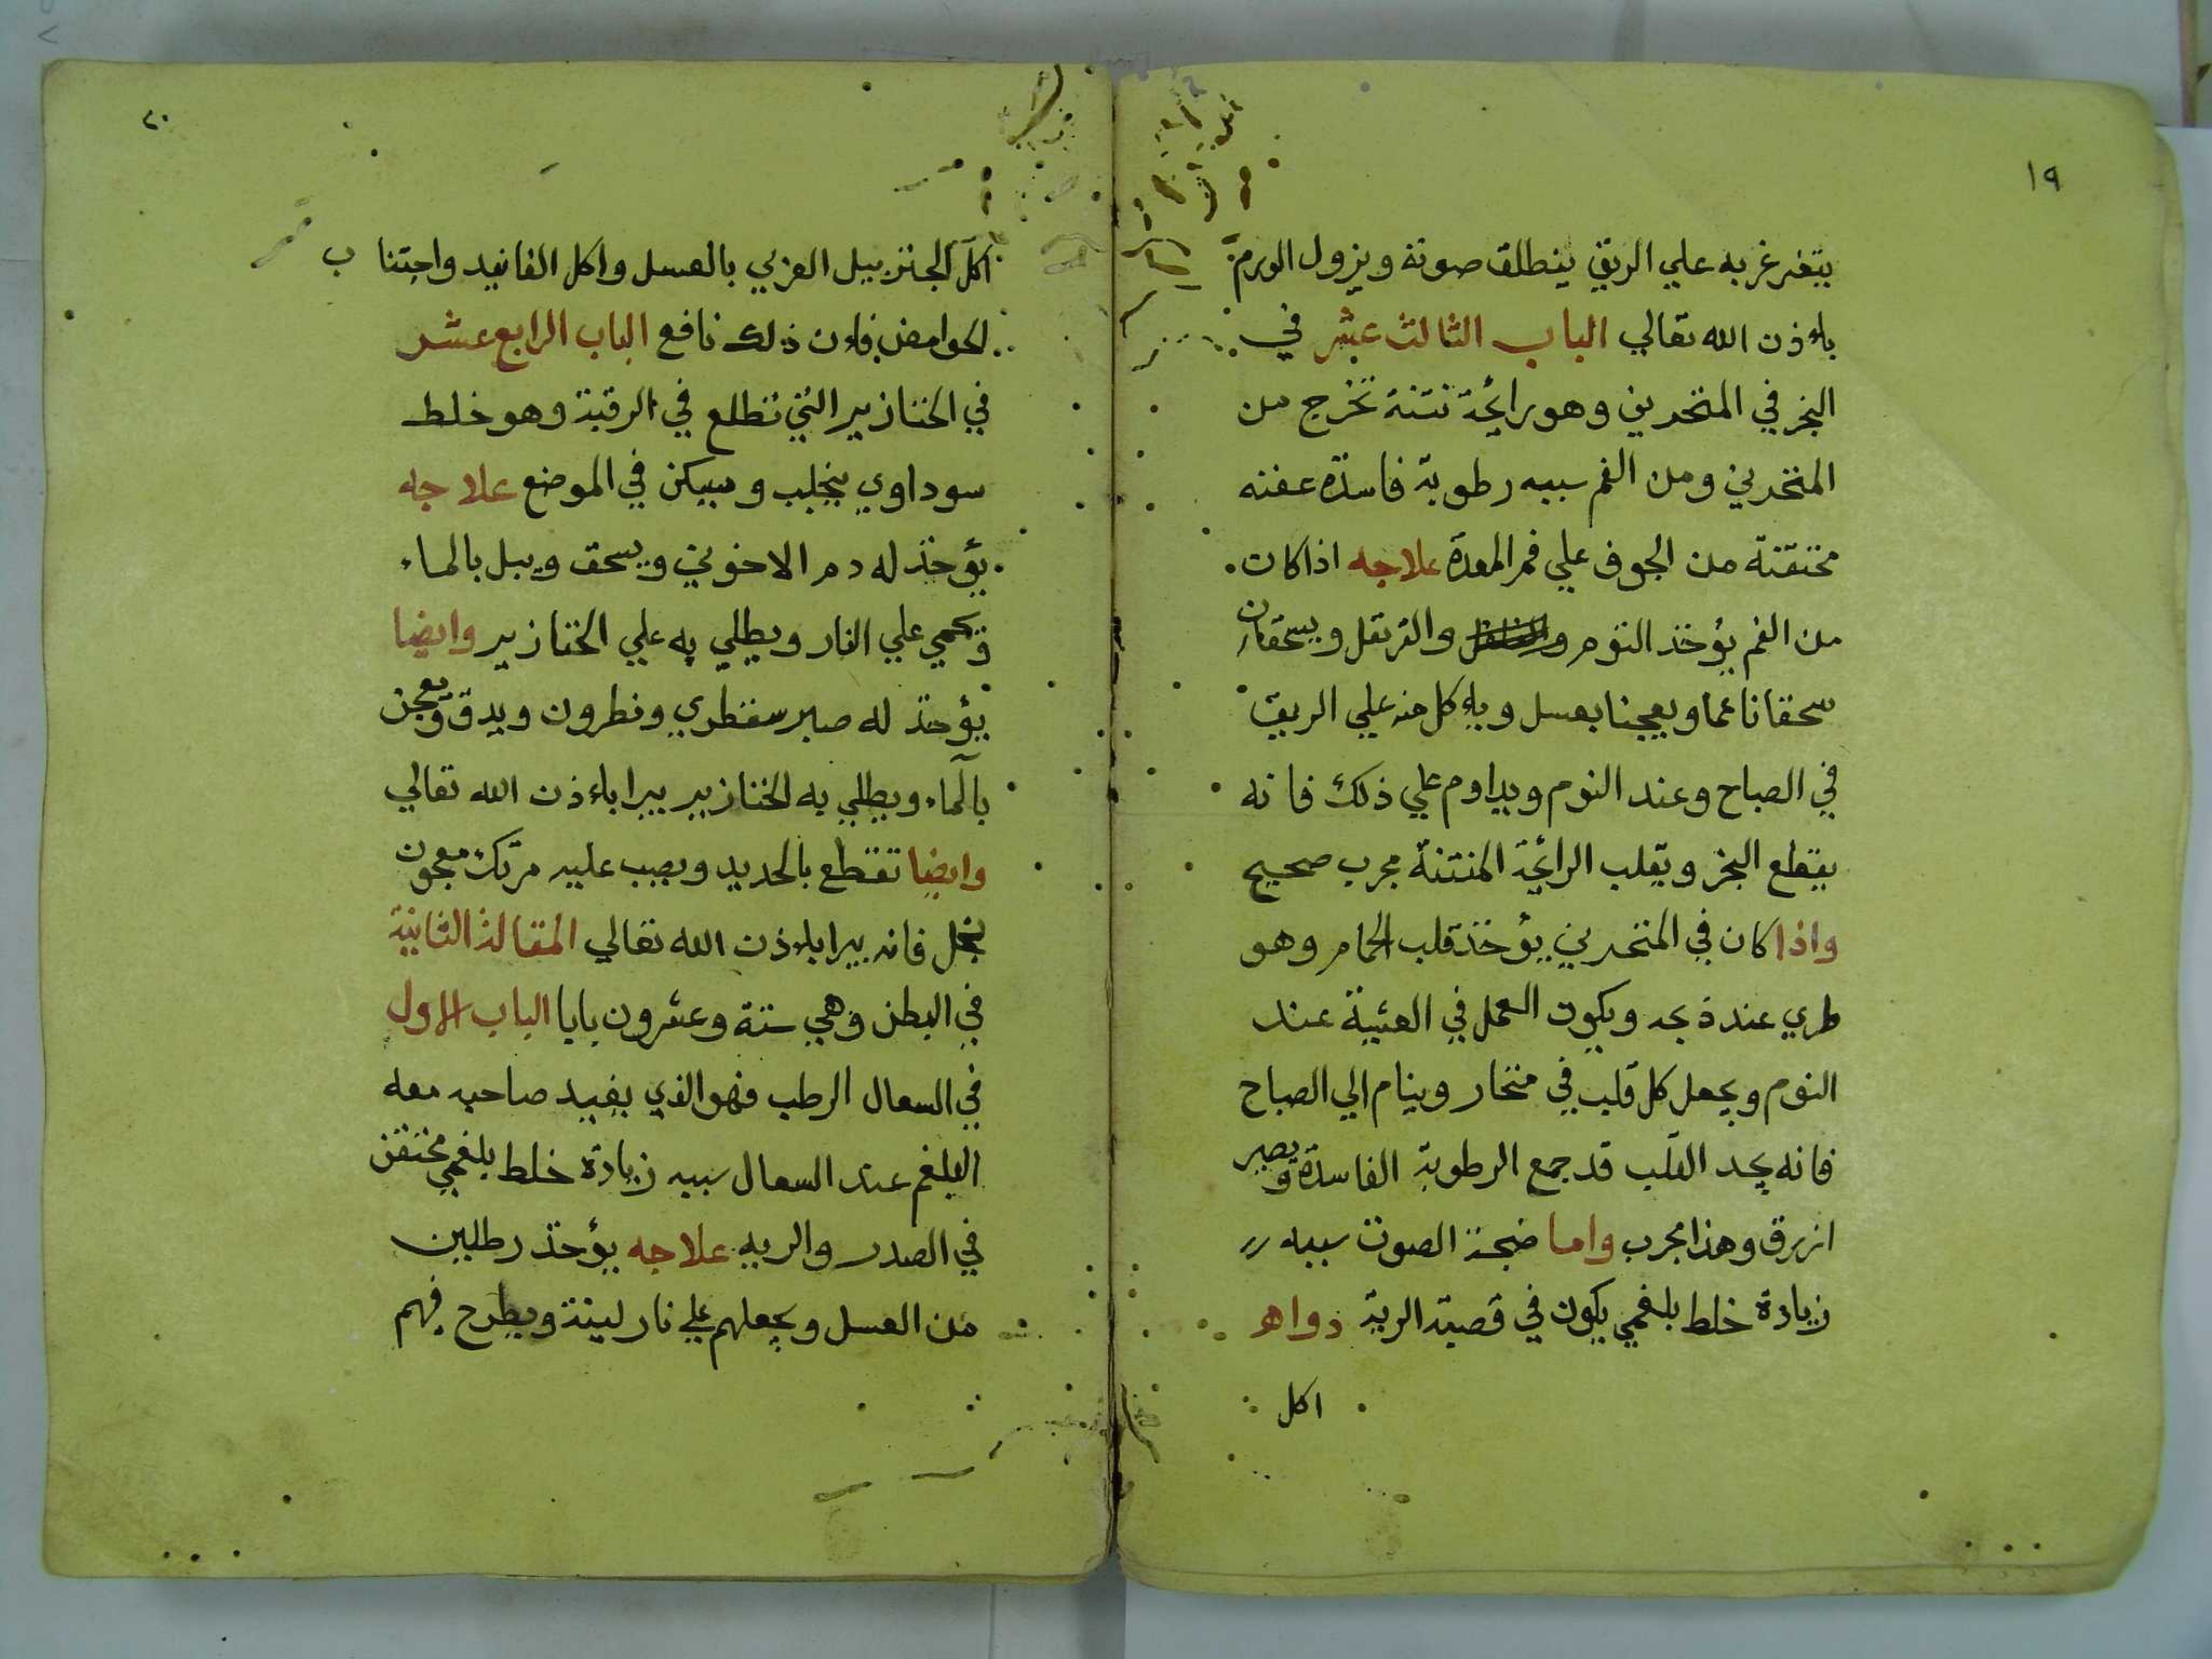 ١٩
يتغرغر به علي الريق ينطلق صوته ويزول الورم
باءذن الله تعالي الباب الثالث عشر في
البخر في المنخرين وهو رائحة نتنة تخرج من
المنخرين ومن الفم سببه رطوبة فاسدة عفنه
مختقنة من الجوف علي فم المعدة علاجه اذا كان
من الفم يؤخذ الثوم والقرنفل ويسحقان
سحقا ناعما ويعجنا بعسل وياءكل منه علي الريق
في الصباح وعند النوم ويداوم علي ذلك فانه
يقطع البخر ويقلب الرائحة المنتنة مجرب صحيح
واذا كان في المنخرين يؤخذ قلب الحمام وهو
طري عند ذبحه ويكون العمل في العشية عند
النوم ويجعل كل قلب في منخار وينام الي الصباح
فانه يجد القلب قد جمع الرطوبة الفاسدة ويصير
ازرق وهذا مجرب واما ضجة الصوت سببه
زيادة خلط بلغمي يكون في قصبة الرية دواه
اكل
٢٠
اكل الجنزبيل العربي بالعسل واكل الفانيد واجتناب
الحوامض فاءن ذلك نافع الباب الرابع عشر
في الخنازير التي تطلع في الرقبة وهو خلط
سوداوي ينجلب ويسكن في الموضع علاجه
يؤخذ له دم الاخوين ويسحق ويبل بالماء
ويحمي علي النار ويطلي به علي الخنازير وايضا
يؤخذ له صبر سقطري ونطرون ويدق ويعجن
بالماء ويطلي به الخنازير يبرا باءذن الله تعالي
وايضا تقطع بالحديد ويصب عليه مرتك معجون
بخل فانه يبرا باءذن الله تعالي المقالة الثانية
في البطن وهي ستة وعشرون بابا الباب الاول
في السعال الرطب فهو الذي يفيد صاحبه معه
البلغم عند السعال سببه زيادة خلط بلغمي مختقن
في الصدر والريه علاجه يؤخذ رطلين
من العسل ويجعلهم علي نار لينة ويطرح فيهم